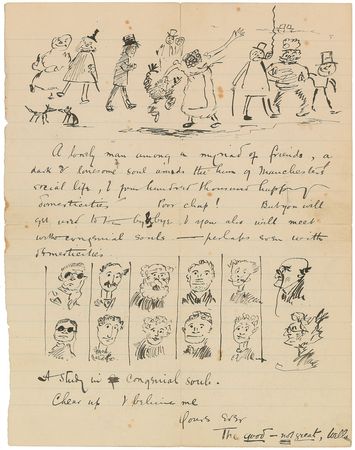 A lonely man among a myriad of friends, a
dark & lonesome soul amidst the hum of Manchester
social life, & four hundred thousand happy
domesticities! Poor chap! But you will
get used to it by & bye & you also will meet
with congenial souls — perhaps even with
domesticities.
A study in congenial souls.
Cheer up & believe me
Yours Ever
The good — not great, Wells